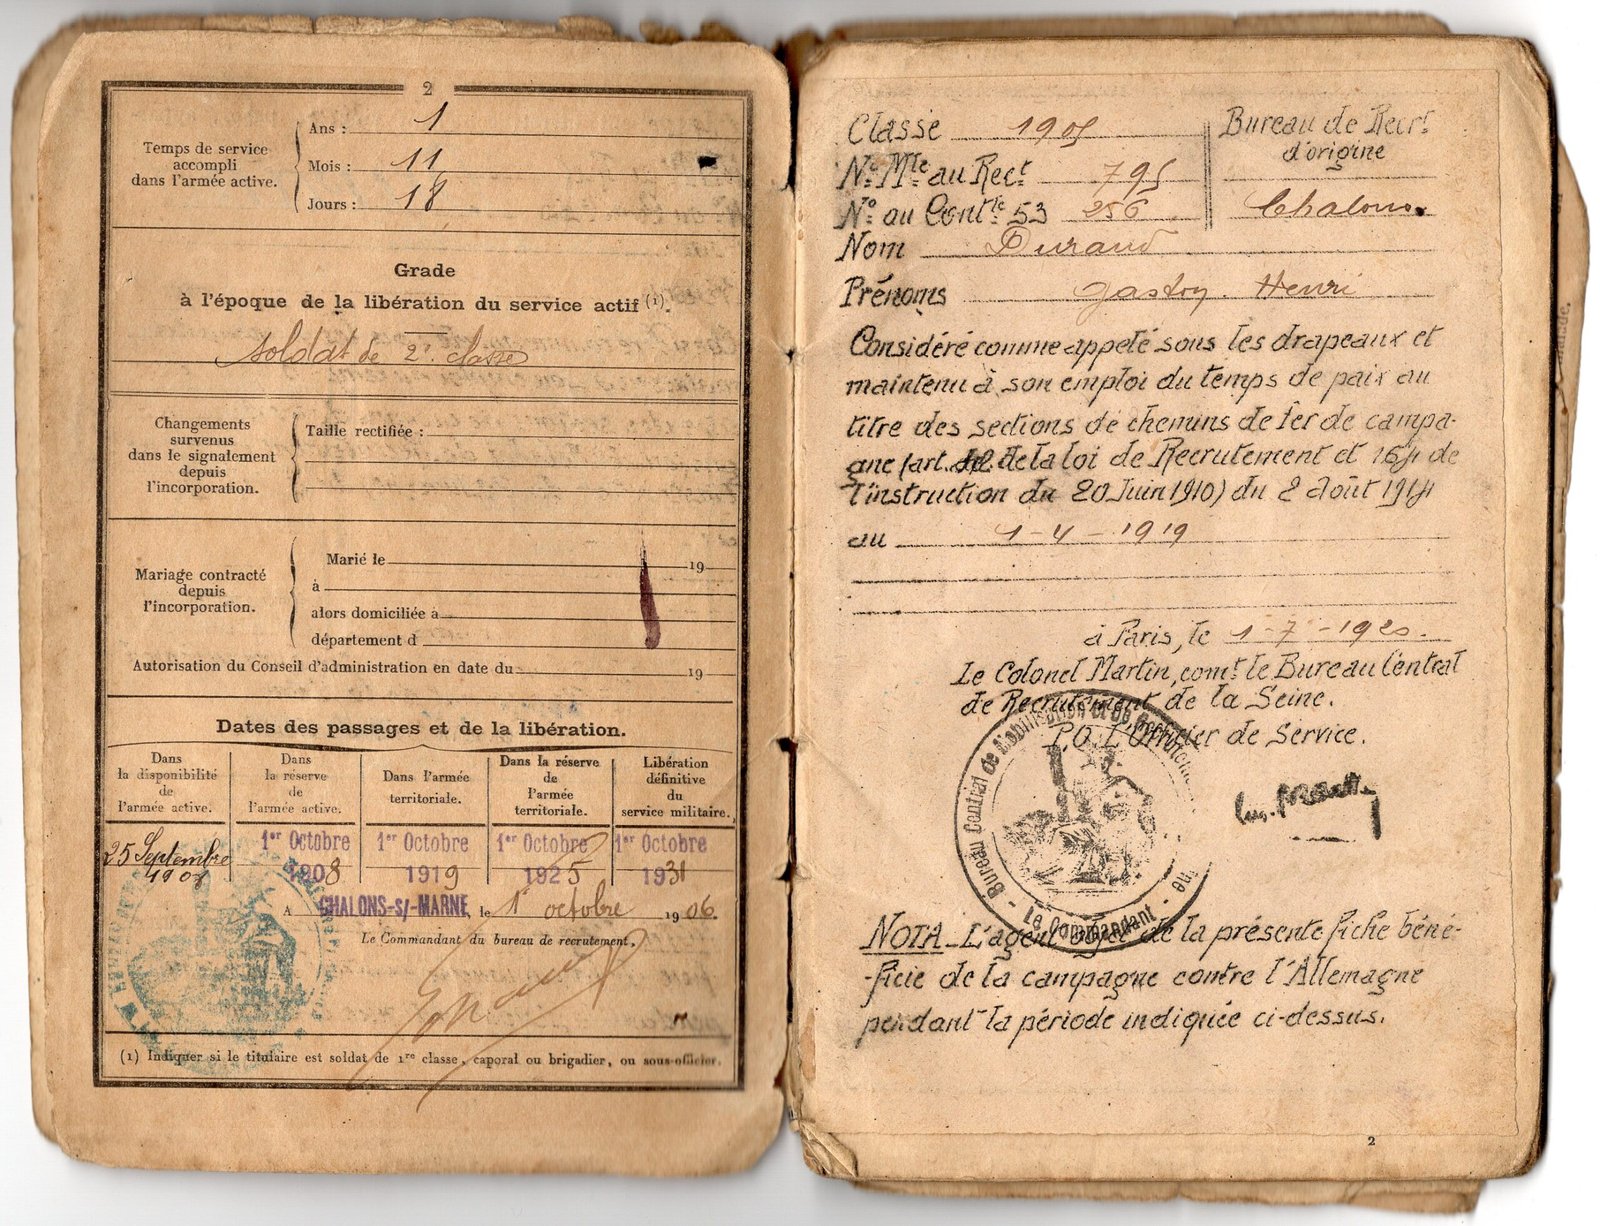 2
Temps de service
accompli
dans l'armée active.
Ans : 1
Mois : 11
Jours : 18
Grade
à l'époque de la libération du service actif (1).
soldat de 2e classe
Changements
survenus
dans le signalement
depuis
l'incorporation.
Taille rectifiée :
Mariage contracté
depuis
l'incorporation.
Marié le 19
à
alors domiciliée à
département d
Autorisation du Conseil d'administration en date du 19
Dates des passages et de la libération.
Dans
la disponibilité
de
l'armée active.
25 Septembre
Dans
la réserve
de
l'armée active.
1er Octobre
1908
Dans l'armée
territoriale.
1er Octobre
1919
Dans la réserve
de
l'armée
territoriale.
1er Octobre
1925
Libération
définitive
du
service militaire.
1er Octobre
1931
A CHALONS-s/-MARNE, le 1er octobre 1906.
Le Commandant du bureau de recrutement,
(1) Indiquer si le titulaire est soldat de 1re classe, caporal ou brigadier, ou sous-officier.
Classe 1905
No Mle au Rect 795
No au Contle 53 256
Bureau de Recrt
d'origine
Chalons.
Nom Durand
Prénoms Gaston Henri
Considéré comme appelé sous les drapeaux et
maintenu à son emploi du temps de paix au
titre des sections de chemins de fer de campa-
gne (art. de la loi de Recrutement et 164 de
l'instruction du 20 Juin 1910) du 2 Août 1914
au 1-4-1919
à Paris, le 1-7-1920.
Le Colonel Martin, comt le Bureau Central
de Recrutement de la Seine.
P.O. L'Officier de Service.
Bureau Central de Mobilisation et de Recrutement
- Le Commandant -
NOTA - L'agent objet de la présente fiche béné-
-ficie de la campagne contre l'Allemagne
pendant la période indiquée ci-dessus.
2